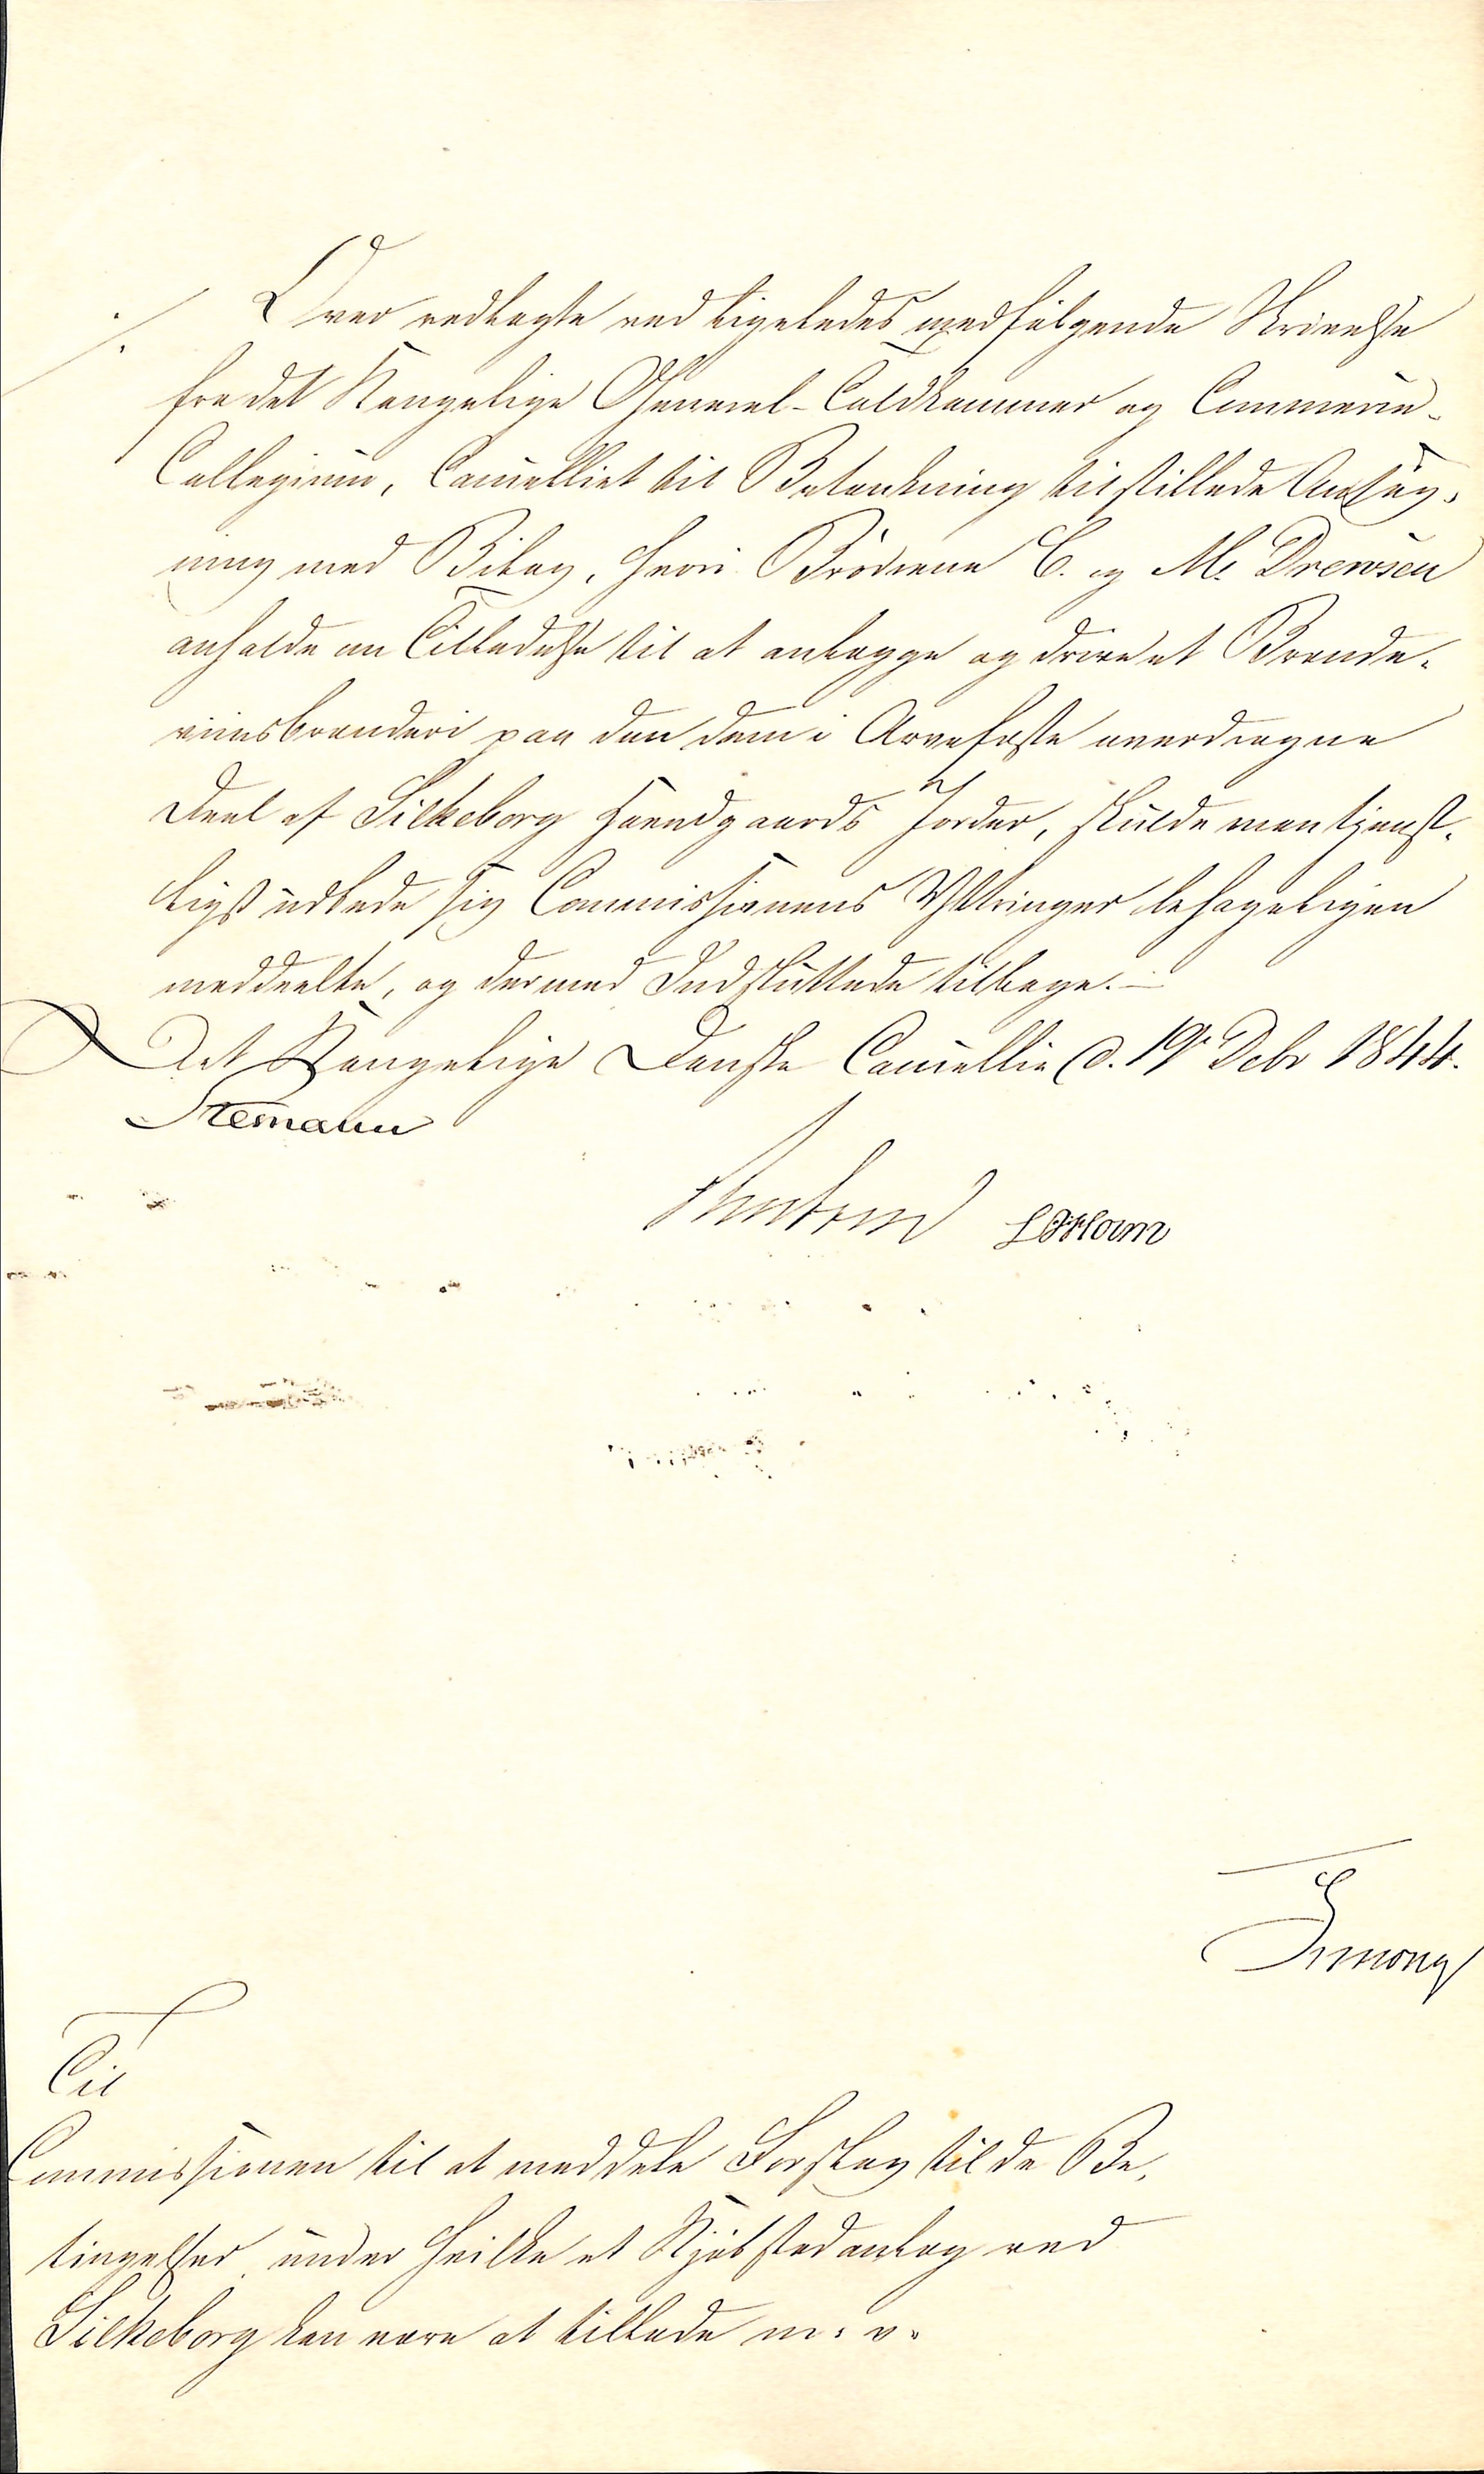 Over vedlagte ved ligeledes medfølgende Skrivelse
fra det Kongelige General-Toldkammer og Commerce-
Collegium, Cancelliet til Betænkning tilstillede Ansøg-
ning med Bilag, hvori Brødrene C. og M. Drewsen
anholde om Tilladelse til at anlægge og drive et Brænde-
viinsbrænderi paa den dem i Arvefæste overdragne
Deel af Silkeborg Hovedgaards Jorder, skulde man tjenst-
ligst udbede sig Commissionens Yttringer behageligen
meddeelte, og dermed Indsluttede tilbage.
Det Kongelige Danske Cancellie d. 19 Debr 1844.
Stemann
Simony
Til
Commissionen til at meddele Forslag til de Be-
tingelser under hvilke et Kjøbstedanlæg ved
Silkeborg kan være at tillade m. v.